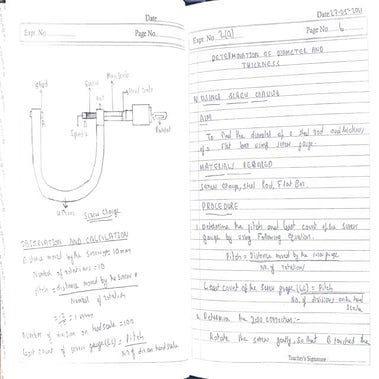 Date
Expt. No.
Page No.
Stud
Screw
Nut
Main Scale
Head Scale
A
B
Spindle
Ratchet
U Frame
Screw Gauge
OBSERVATION AND CALCULATION
Distance moved by the screw = 10mm
Number of rotations = 10
Pitch = Distance moved by the screw
Number of rotation
= 1 mm
Number of division on head scale = 100
Least count of screw gauge (LC) = Pitch
No. of div on head scale
Date 27-05-2021
Expt. No. 2(a)
Page No. 6
DETERMINATION OF DIAMETER AND
THICKNESS
USING SCREW GAUGE
AIM
To find the diameter of a steel rod and thickness
of a flat bar using screw gauge.
MATERIALS REQUIRED
Screw Gauge, Steel Rod, Flat Bar.
PROCEDURE
1. Determine the pitch and least count of the screw
gauge by using following equation.
Pitch = Distance moved by the screw gauge
No. of rotations
Least count of the screw gauge (LC) = Pitch
No. of divisions on the head
scale
2. Determine the zero correction:-
Rotate the screw gently, so that B touched the
Teacher's Signature